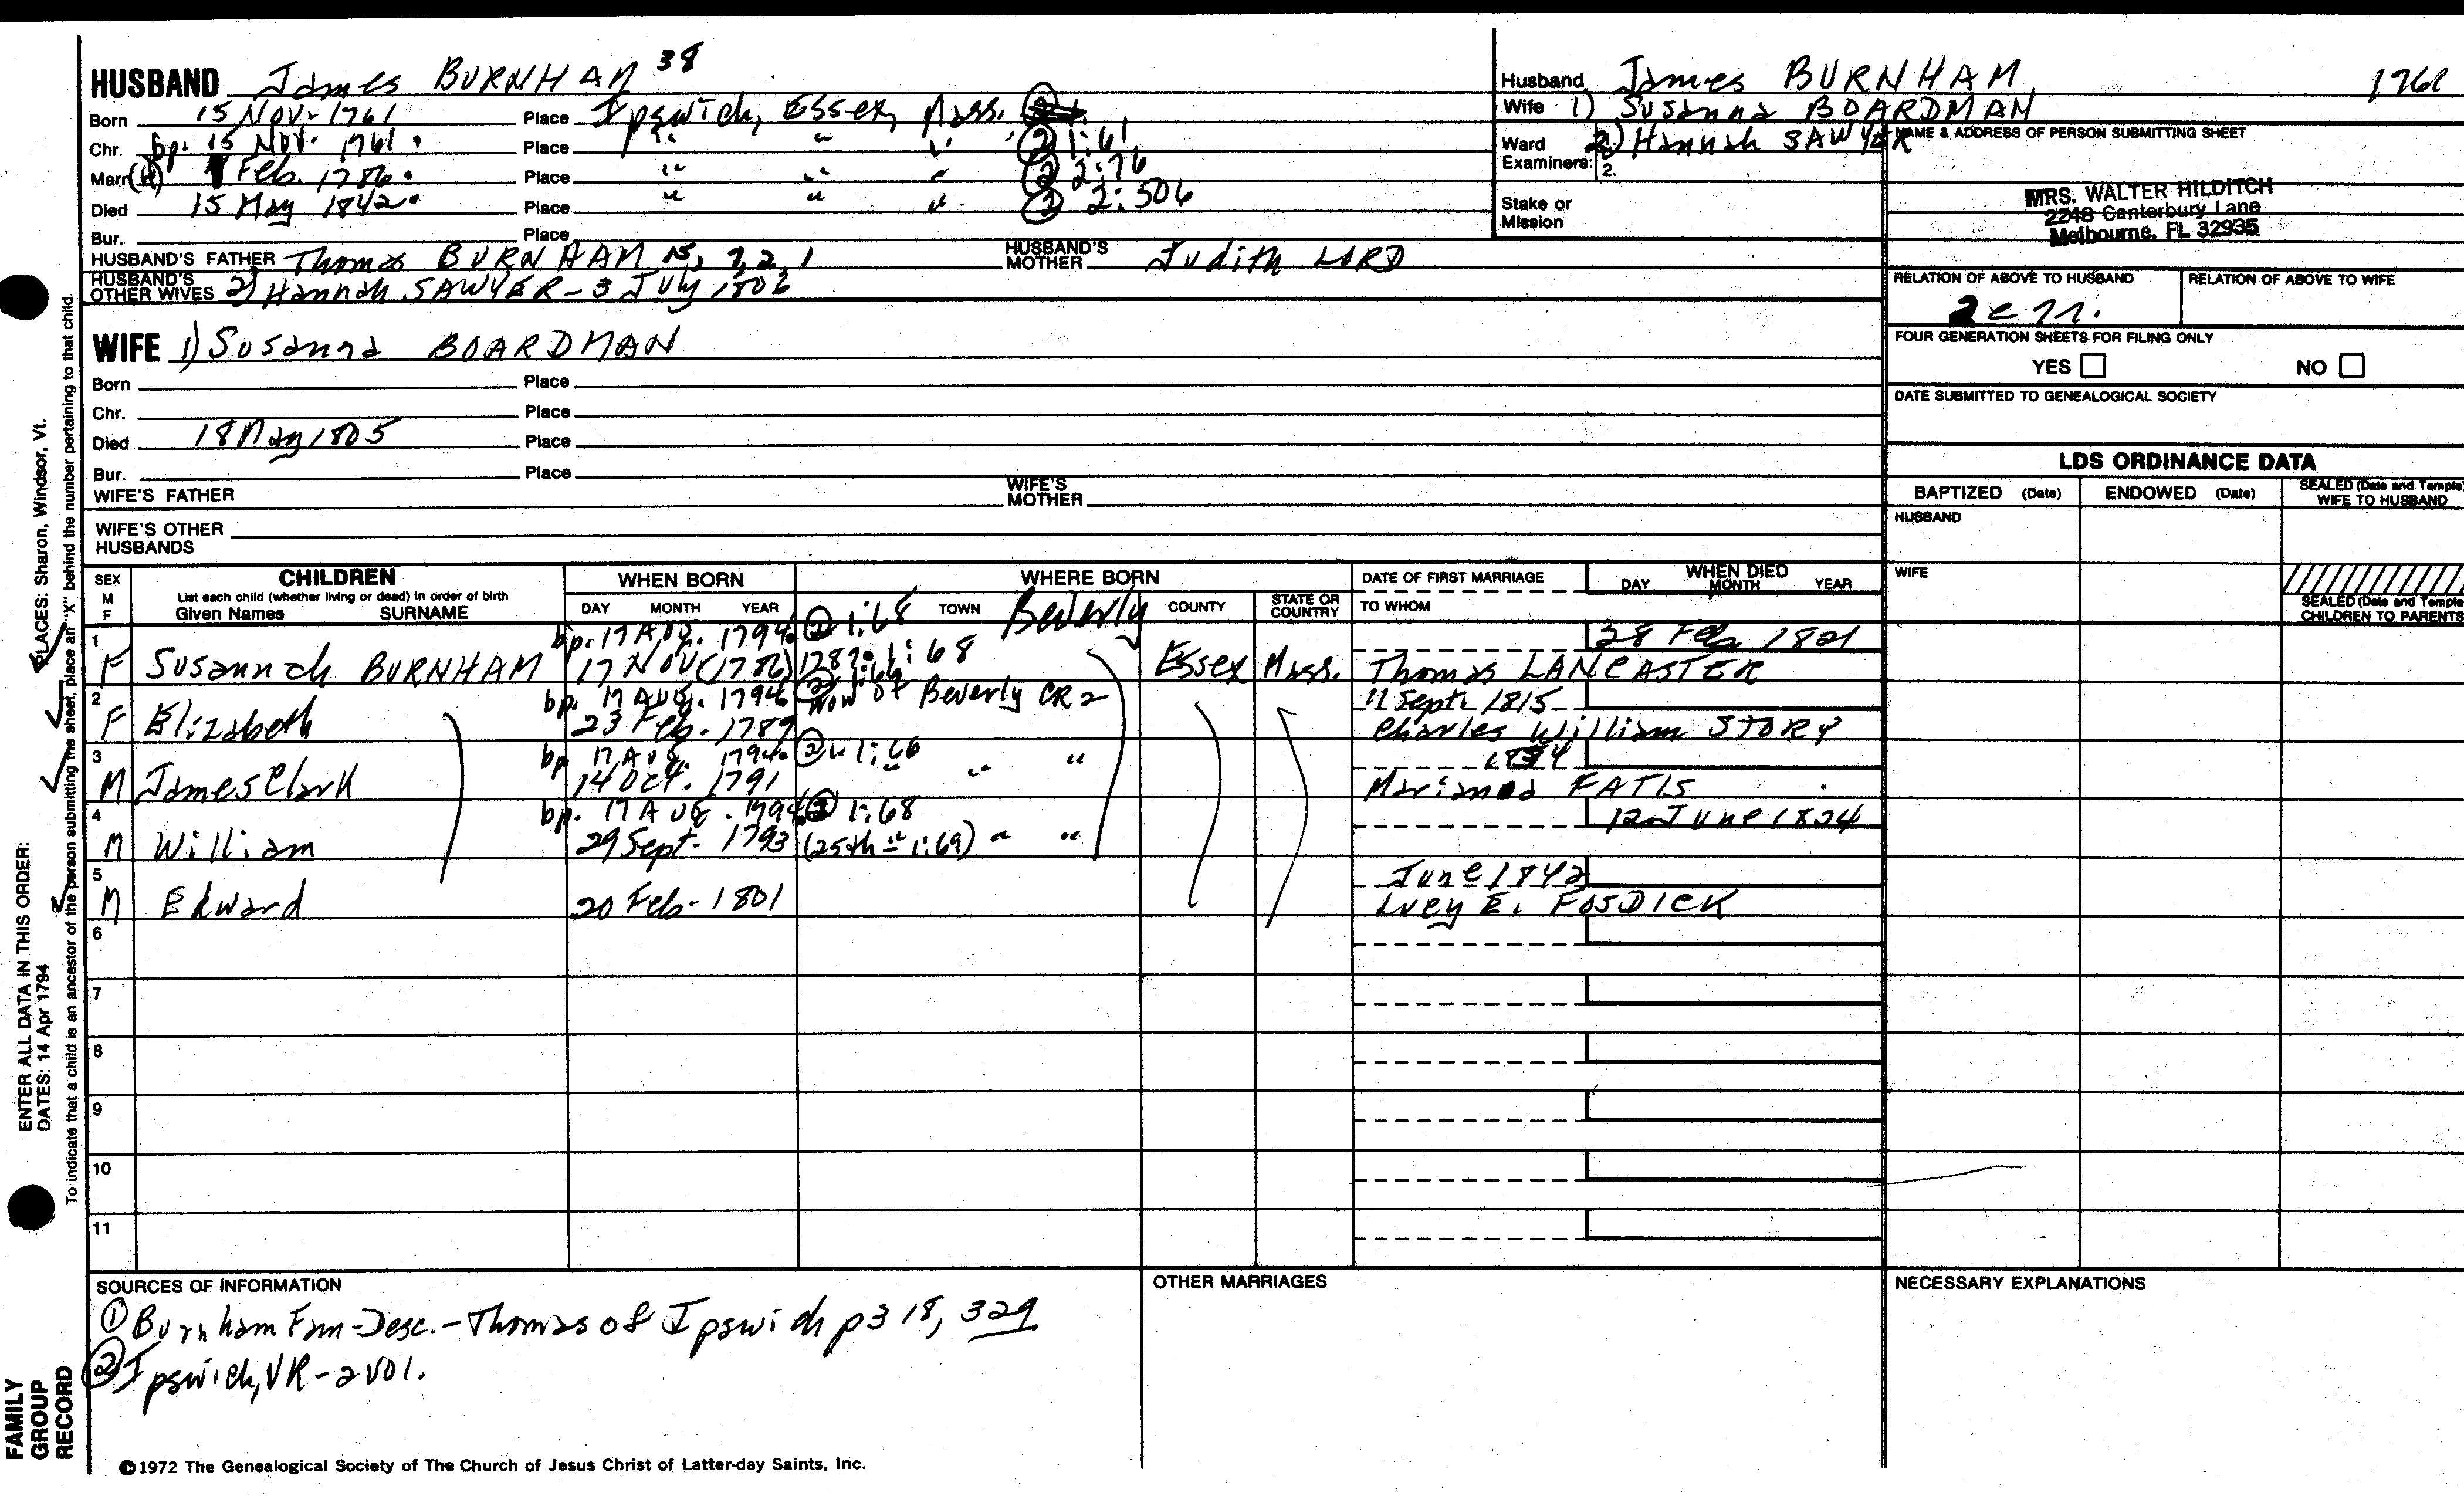 HUSBAND James BURNHAM 38
Born 15 Nov. 1761 Place Ipswich, Essex, Mass.
Chr. bp. 15 Nov. 1761. Place " " " ② 1:61
Marr. Feb. 1786. Place " " " ② 2:76
Died 15 May 1842. Place " " " ② 2:506
Bur. Place
HUSBAND'S FATHER Thomas BURNHAM 15, 7, 2, 1 HUSBAND'S MOTHER Judith LORD
HUSBAND'S OTHER WIVES 2) Hannah SAWYER - 3 July 1806
WIFE 1) Susanna BOARDMAN
Born Place
Chr. Place
Died 18 May 1805 Place
Bur. Place
WIFE'S FATHER WIFE'S MOTHER
WIFE'S OTHER HUSBANDS
Husband James BURNHAM 1761
Wife 1) Susanna BOARDMAN
Ward 2) Hannah SAWYER
Examiners: 2.
Stake or Mission
NAME & ADDRESS OF PERSON SUBMITTING SHEET
MRS. WALTER HILDITCH
2248 Canterbury Lane
Melbourne, FL 32935
RELATION OF ABOVE TO HUSBAND RELATION OF ABOVE TO WIFE
FOUR GENERATION SHEETS FOR FILING ONLY
YES NO
DATE SUBMITTED TO GENEALOGICAL SOCIETY
LDS ORDINANCE DATA
BAPTIZED (Date) ENDOWED (Date) SEALED (Date and Temple) WIFE TO HUSBAND
HUSBAND
WIFE
SEALED (Date and Temple) CHILDREN TO PARENTS
SEX M F CHILDREN WHEN BORN WHERE BORN DATE OF FIRST MARRIAGE WHEN DIED
List each child (whether living or dead) in order of birth
Given Names SURNAME DAY MONTH YEAR TOWN COUNTY STATE OR COUNTRY TO WHOM DAY MONTH YEAR
② 1:68 Beverly
1 bp. 17 Aug. 1794. 28 Feb 1821
F Susannah BURNHAM 17 Nov (1786) 1787. 1:68 Essex Mass. Thomas LANCASTER
2 bp. 17 Aug. 1794 ② 1:66 now of Beverly CR2 11 Sept. 1815
F Elizabeth 23 Feb. 1789 Charles William STORY
3 bp 17 Aug. 1794. ② " 1:66
M James Clark 14 Oct. 1791 " " " Marianna FATIS
4 bp. 17 Aug. 1794 ② 1:68 12 June 1824
M William 29 Sept. 1793 (25th " 1:69) " "
5 June 1842
M Edward 20 Feb. 1801 Lucy E. FOSDICK
6
7
8
9
10
11
SOURCES OF INFORMATION
① Burnham Fam - Desc. - Thomas of Ipswich p 318, 329
② Ipswich, VR - 2 vol.
OTHER MARRIAGES
NECESSARY EXPLANATIONS
©1972 The Genealogical Society of The Church of Jesus Christ of Latter-day Saints, Inc.
FAMILY GROUP RECORD
ENTER ALL DATA IN THIS ORDER:
DATES: 14 Apr 1794
PLACES: Sharon, Windsor, Vt.
To indicate that a child is an ancestor of the person submitting the sheet, place an "X" behind the number pertaining to that child.